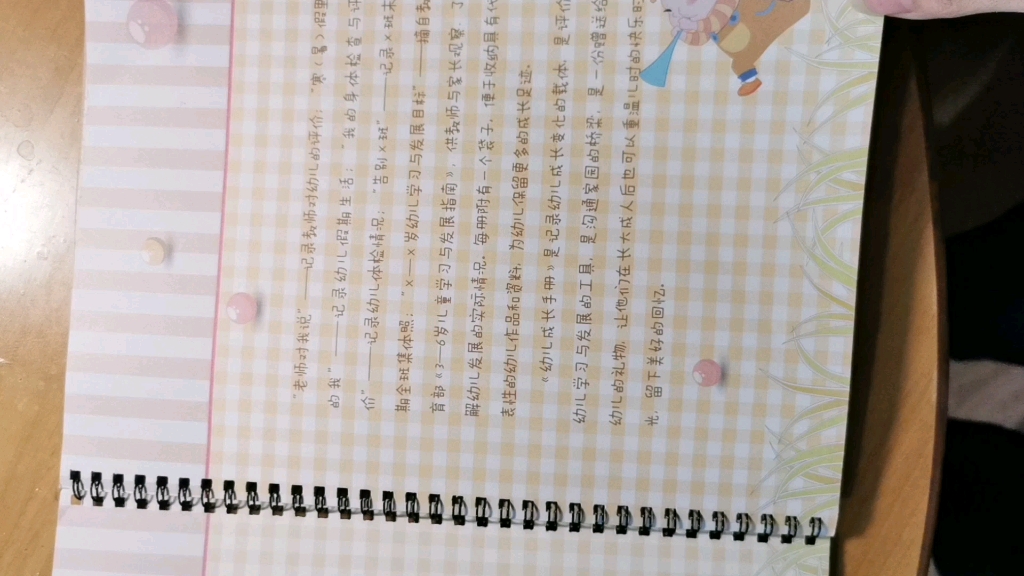 “老师对我说”——记录教师对幼儿的评价；“寒（暑）假里
的我”——记录幼儿假期生活；“我的身体检查与评
价”——记录幼儿体检情况；“告别×班”——记录×班末
期全班集体照；“×—×岁幼儿学习与发展目标”——摘自教
育部《3—6岁儿童学习与发展指南》，供教师与家长观察、了
解幼儿发展的实际情况。每册附有一个袋子，便于收纳具有代
表性的幼儿作品和资料，为幼儿保留更多的成长足迹。
《幼儿成长手册》是记录幼儿成长变化的载体，是评价
幼儿学习与发展的工具，是沟通家园的桥梁，是一份赠送给
幼儿的礼物，让他们在长大成人后也可以重温儿时的快乐时
光，留下美好的回忆。